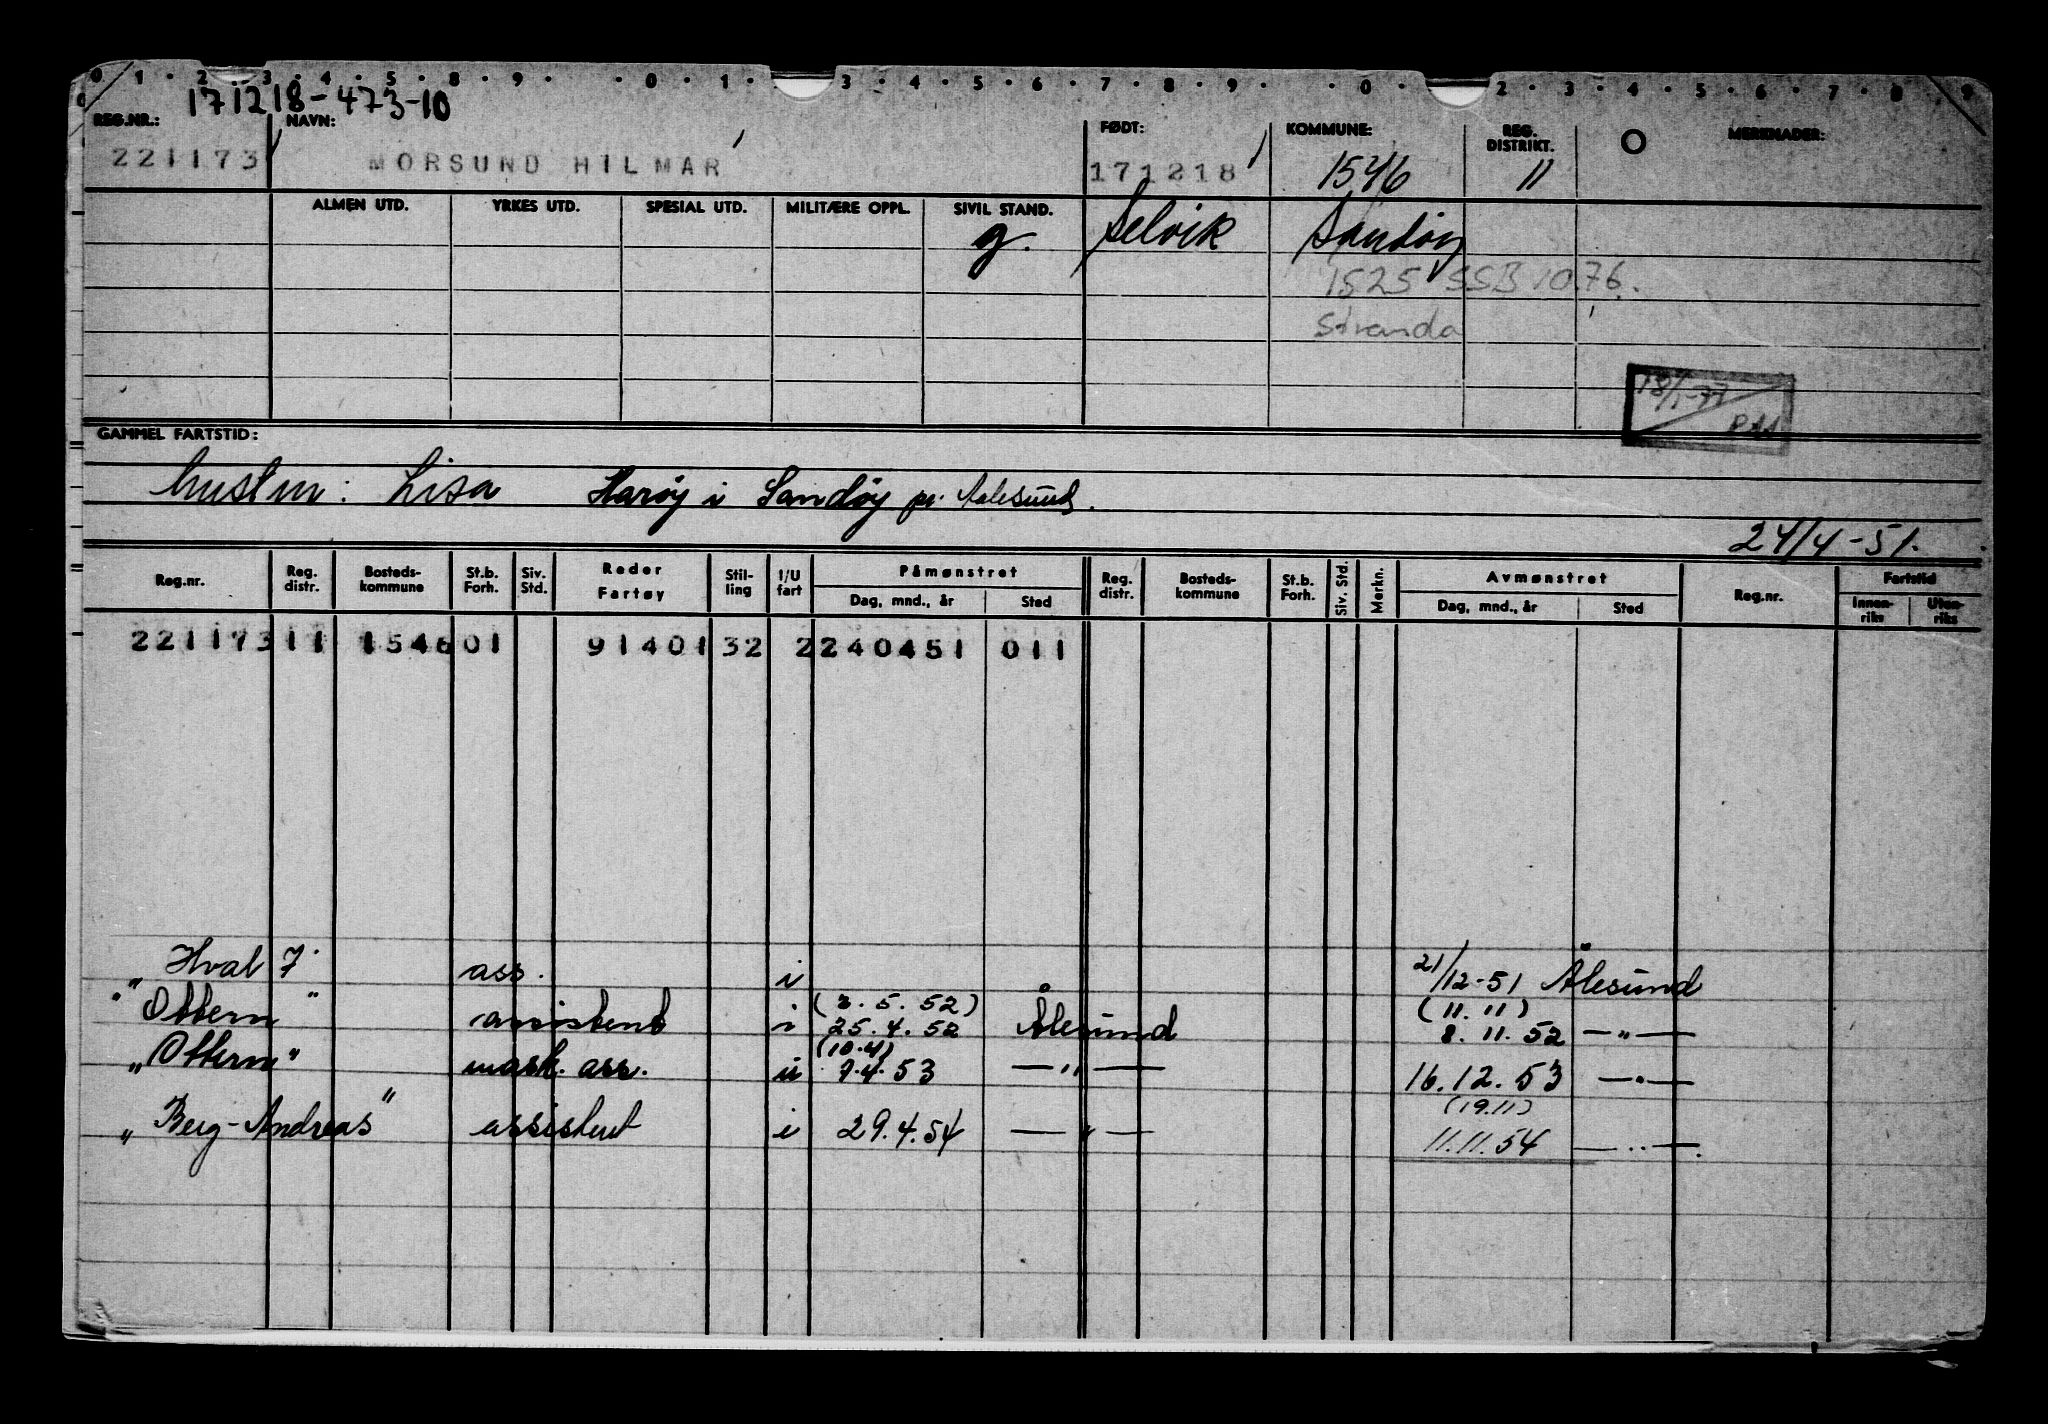 0 1 2 3 4 5 8 9 0 1 3 4 5 6 7 8 9 0 2 3 4 5 6 7 8 9
171218-473-10
REG.NR.: NAVN: FØDT: KOMMUNE: REG. DISTRIKT. MERKNADER:
221173 MORSUND HILMAR 171218 1546 11
ALMEN UTD. YRKES UTD. SPESIAL UTD. MILITÆRE OPPL. SIVIL STAND.
g. Selvik Sandøy
1525 SSB 10.76.
Stranda
18/1-77
GAMMEL FARTSTID:
hustru: Lisa Harøy i Sandøy pr. Aalesund.
24/4-51.
Reg.nr. Reg. distr. Bosteds-kommune St.b. Forh. Siv. Std. Reder Fartøy Stil-ling I/U fart Påmønstret Reg. distr. Bosteds-kommune St.b. Forh. Siv. Std. Merkn. Avmønstret Reg.nr. Fartstid
Dag, mnd., år Sted Dag, mnd., år Sted Innen-riks Uten-riks
221173 11 1546 01 91401 32 2 240451 011
Hval 7. ass. i 21/12-51 Ålesund
(2.5.52) (11.11)
"Ottern" assistent i 25.4.52 Ålesund 8.11.52 —"—
(10.4)
"Ottern" mask. ass. u 7.4.53 —"— 16.12.53 —"—
(19.11)
"Berg-Andreas" assistent i 29.4.54 —"— 11.11.54 —"—.